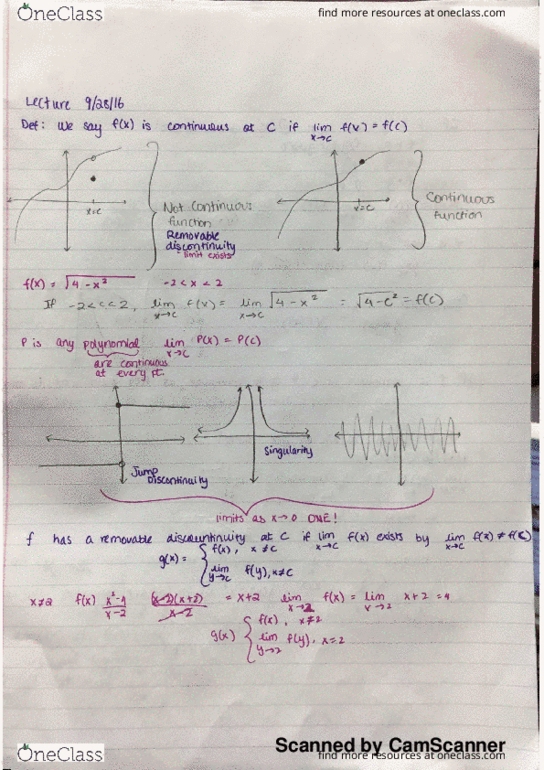 OneClass
find more resources at oneclass.com
Lecture 9/28/16
Def: We say f(x) is continuous at C if lim x→c f(x) = f(c)
x=c
Not Continuous function
Removable discontinuity
limit exists
x=c
Continuous function
f(x) = √4-x² -2<x<2
If -2<c<2, lim x→c f(x) = lim x→c √4-x² = √4-c² = f(c)
P is any polynomial lim x→c P(x) = P(c)
are continuous at every pt.
Jump Discontinuity
Singularity
limits as x→0 DNE!
f has a removable discountinuity at C if lim x→c f(x) exists by lim x→c f(x) ≠ f(c)
g(x) = { f(x), x≠c
lim y→c f(y), x≠c
x≠2 f(x) x²-4/x-2 (x-2)(x+2)/x-2 = x+2 lim x→2 f(x) = lim x→2 x+2 = 4
g(x) { f(x), x≠2
lim y→2 f(y), x=2
Scanned by CamScanner
OneClass
find more resources at oneclass.com